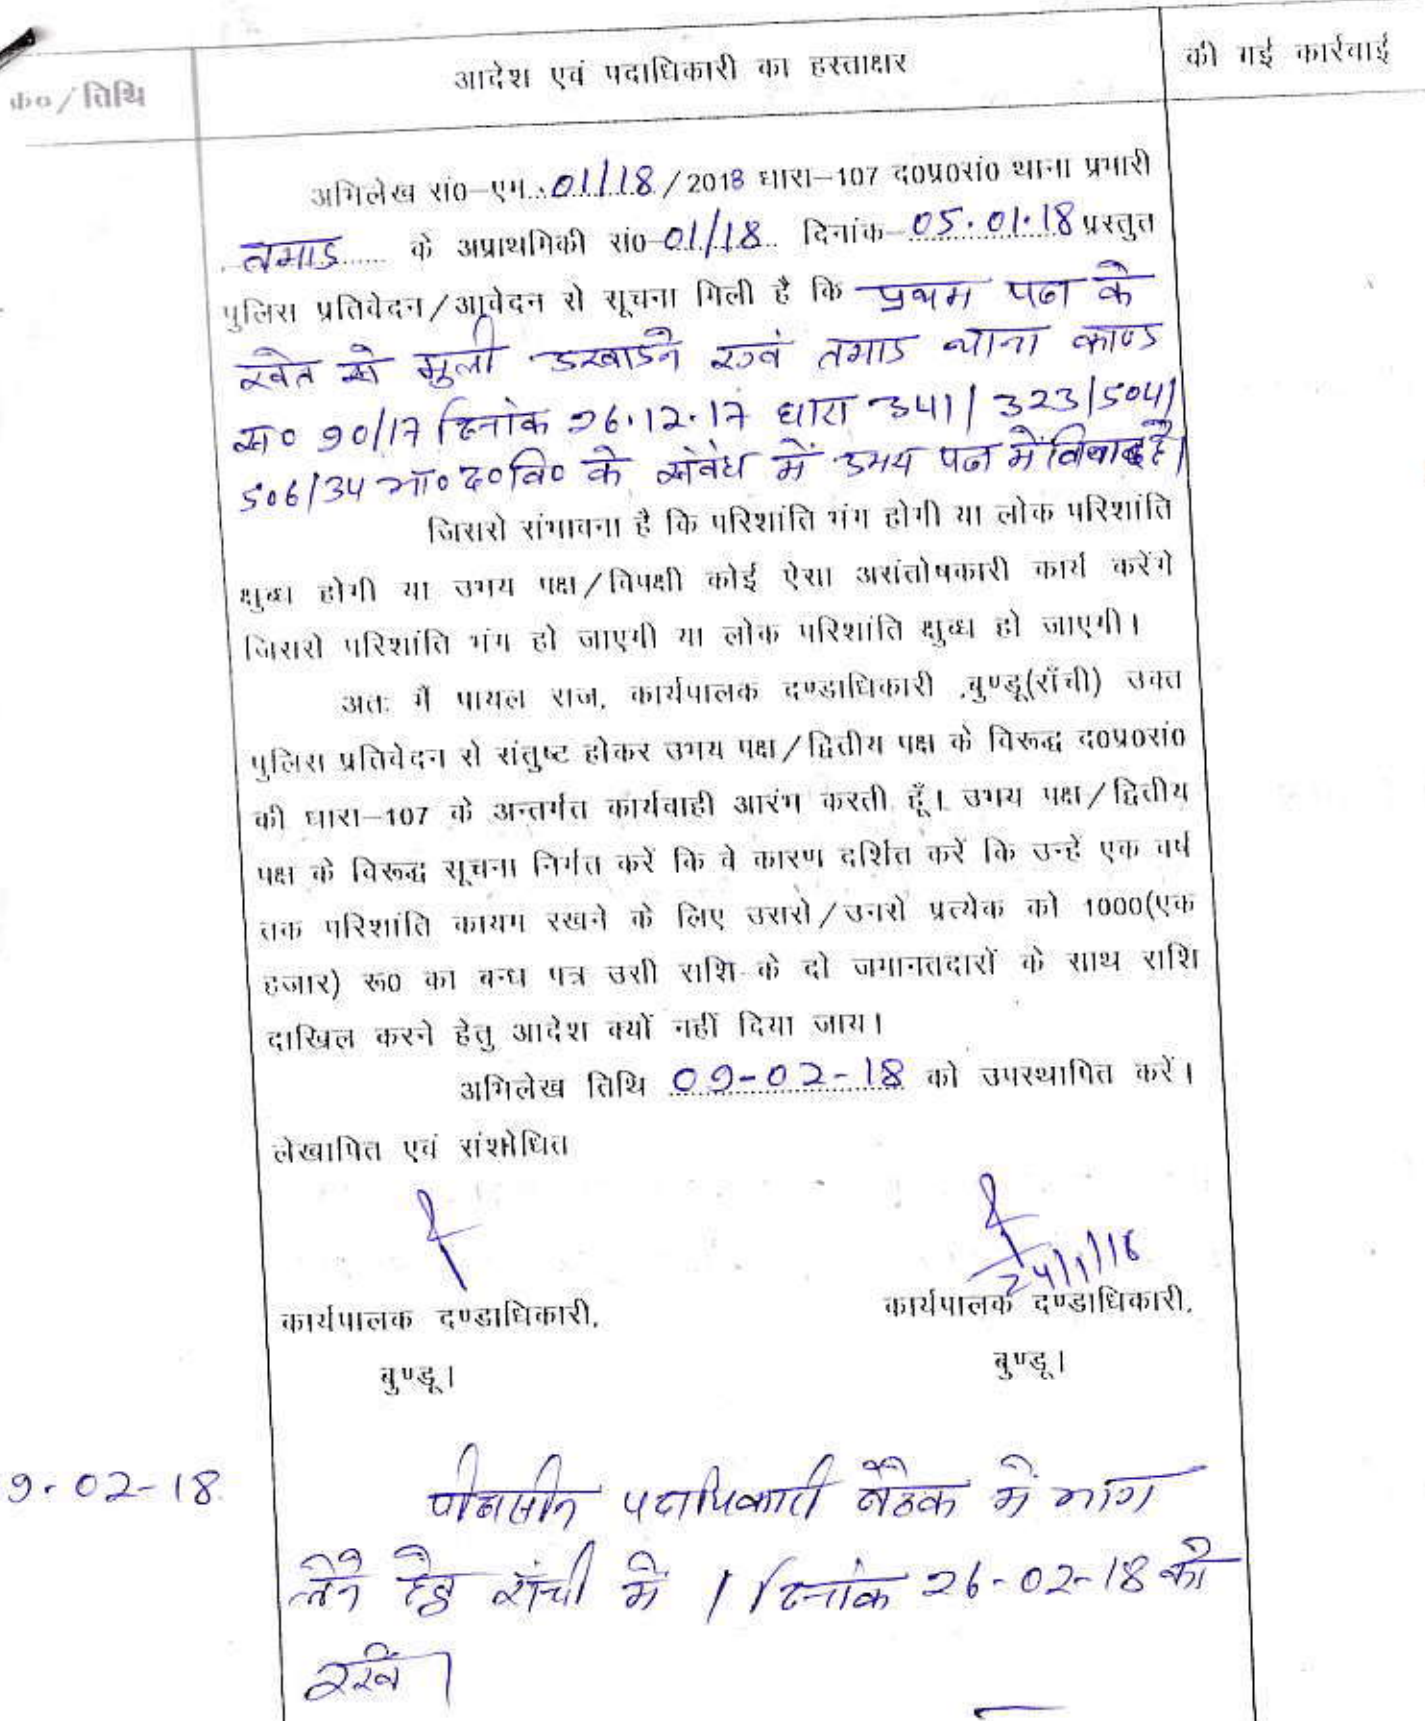 क्र०/तिथि
आदेश एवं पदाधिकारी का हस्ताक्षर
की गई कार्रवाई
अभिलेख सं०-एम...01/18/2018 धारा-107 द०प्र०सं० थाना प्रभारी
तमाड़ के अप्राथमिकी सं०-01/18 दिनांक-05.01.18 प्रस्तुत
पुलिस प्रतिवेदन/आवेदन से सूचना मिली है कि प्रथम पक्ष के
खेत से मुली उखाडने एवं तमाड थाना काण्ड
स० 90/17 दिनांक 26.12.17 धारा 341/323/504/
506/34 भा०द०वि० के संबंध में उभय पक्ष में विवाद है।
जिससे संभावना है कि परिशांति भंग होगी या लोक परिशांति
क्षुब्ध होगी या उभय पक्ष/विपक्षी कोई ऐसा असंतोषकारी कार्य करेंगे
जिससे परिशांति भंग हो जाएगी या लोक परिशांति क्षुब्ध हो जाएगी।
अतः मैं पायल राज, कार्यपालक दण्डाधिकारी ,बुण्डू(राँची) उक्त
पुलिस प्रतिवेदन से संतुष्ट होकर उभय पक्ष/द्वितीय पक्ष के विरूद्ध द०प्र०सं०
की धारा-107 के अन्तर्गत कार्यवाही आरंभ करती हूँ। उभय पक्ष/द्वितीय
पक्ष के विरूद्ध सूचना निर्गत करें कि वे कारण दर्शित करें कि उन्हें एक वर्ष
तक परिशांति कायम रखने के लिए उससे/उनसे प्रत्येक को 1000(एक
हजार) रू० का बन्ध पत्र उसी राशि के दो जमानतदारों के साथ राशि
दाखिल करने हेतु आदेश क्यों नहीं दिया जाय।
अभिलेख तिथि 09-02-18 को उपस्थापित करें।
लेखापित एवं संशोधित
24/1/18
कार्यपालक दण्डाधिकारी,
कार्यपालक दण्डाधिकारी,
बुण्डू।
बुण्डू।
9.02-18
पीठासीन पदाधिकारी बैठक में भाग
लेने हेतु राँची में। दिनांक 26-02-18 को
रखें।